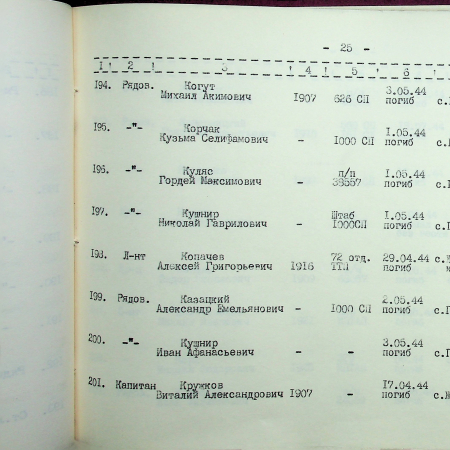 - 25 -
1 ! 2 ! 3 ! 4 ! 5 ! 6 !
194. Рядов. Когут 3.05.44
Михаил Акимович 1907 626 СП погиб
195. -"- Корчак 1.05.44
Кузьма Селифамович - 1000 СП погиб
196. -"- Куляс п/п 1.05.44
Гордей Максимович - 38557 погиб
197. -"- Кушнир Штаб 1.05.44
Николай Гаврилович - 1000СП погиб
198. Л-нт Копачев 72 отд. 29.04.44
Алексей Григорьевич 1916 ТТП погиб
199. Рядов. Казацкий 2.05.44
Александр Емельянович - 1000 СП погиб
200. -"- Кушнир 3.05.44
Иван Афанасьевич - - погиб
201. Капитан Кружков 17.04.44
Виталий Александрович 1907 - погиб